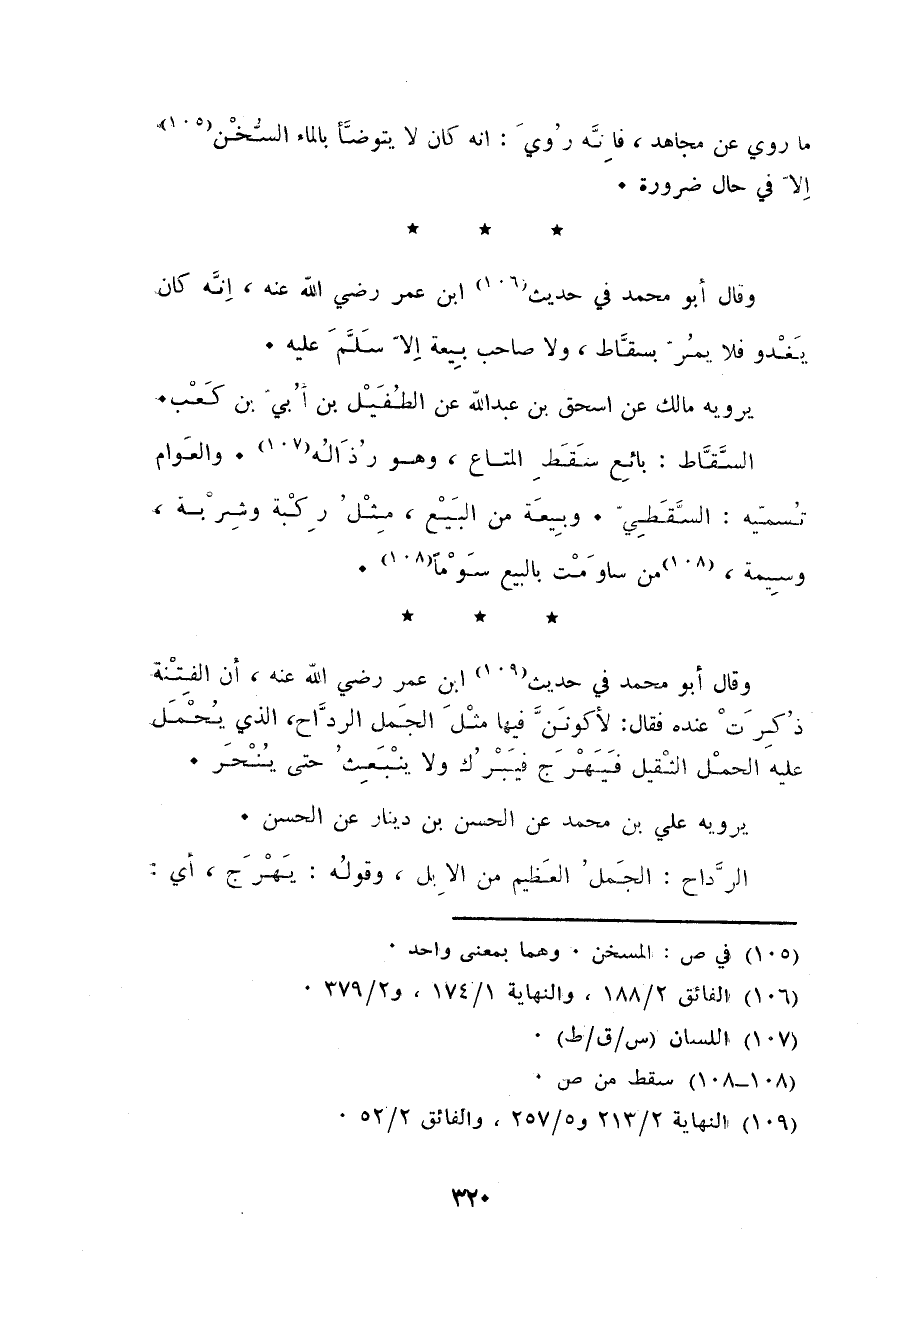 ما روي عن مجاهد ، فإِنَّه رُوِيَ : انه كان لا يتوضَّأ بالماء السُّخْن(١٠٥)
إِلاّ في حال ضرورة .
★ ★ ★
وقال أبو محمد في حديث(١٠٦) ابن عمر رضي الله عنه ، إِنَّه كان
يَغْدو فلا يمُرّ بسقَّاط ، ولا صاحب بِيعة إِلاّ سَلَّمَ عليه .
يرويه مالك عن اسحق بن عبدالله عن الطُفَيْل بن أُبيّ بن كَعْب .
السَّقَّاط : بائِع سَقَطِ المتاع ، وهو رُذَالُه(١٠٧) . والعَوام
تُسمّيه : السَّقَطِيّ . وبِيعَة من البَيْع ، مِثْلُ رِكْبة وشِرْبة ،
وسِيمة ، (١٠٨)من ساوَمْت بالبيع سَوْماً(١٠٨) .
★ ★ ★
وقال أبو محمد في حديث(١٠٩) ابن عمر رضي الله عنه ، أن الفِتْنة
ذُكِرَتْ عنده فقال: لأكونَنَّ فيها مثْلَ الجَمل الردَّاح، الذي يُحْمَل
عليه الحمْل الثقيل فَيَهْرَج فيَبْرُك ولا يَنْبَعِثُ حتى يُنْحَرَ .
يرويه علي بن محمد عن الحسن بن دينار عن الحسن .
الرَّداح : الجَملُ العَظيم من الاِبل ، وقولُه : يَهْرَج ، أي :
(١٠٥) في ص : المسخن . وهما بمعنى واحد .
(١٠٦) الفائق ١٨٨/٢ ، والنهاية ١٧٤/١ ، و٣٧٩/٢ .
(١٠٧) اللسان (س/ق/ط) .
(١٠٨ــ١٠٨) سقط من ص .
(١٠٩) النهاية ٢١٣/٢ و٢٥٧/٥ ، والفائق ٥٢/٢ .
٣٢٠